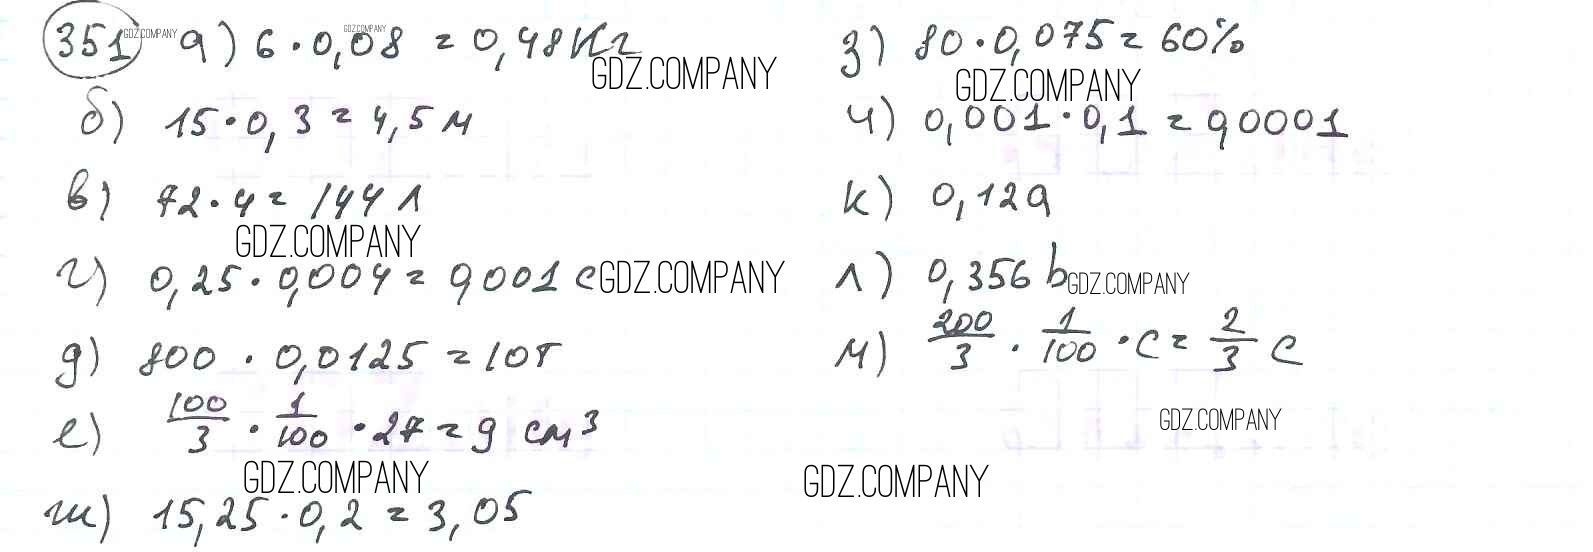 351 а) 6 · 0,08 = 0,48 кг
GDZ.COMPANY
GDZ.COMPANY
GDZ.COMPANY
б) 15 · 0,3 = 4,5 м
в) 72 · 4 = 144 л
GDZ.COMPANY
г) 0,25 · 0,004 = 0,001 с
GDZ.COMPANY
д) 800 · 0,0125 = 10т
е) 100/3 · 1/100 · 27 = 9 см³
GDZ.COMPANY
ж) 15,25 · 0,2 = 3,05
з) 80 · 0,075 = 60%
GDZ.COMPANY
и) 0,001 · 0,1 = 0,0001
к) 0,12a
л) 0,356 b
GDZ.COMPANY
м) 200/3 · 1/100 · c = 2/3 c
GDZ.COMPANY
GDZ.COMPANY